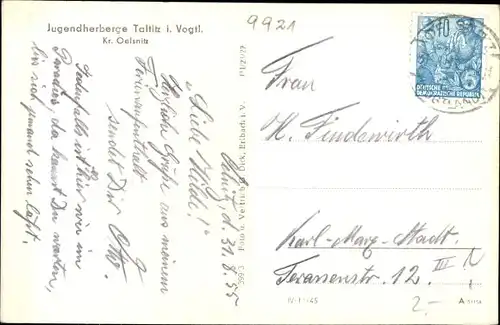 Jugendherberge Taltitz i. Vogtl.
Kr. Oelsnitz
9921
Oelsnitz, d. 31. 8. 55
"Liebe Hilde!"
Herzliche Grüße aus meinem
Ferienaufenthalt
sendet Dir Otto.
Jedenfalls ist hier wie im
Paradies, da kannst Du warten,
bis sich jemand sehen läßt.
Foto u. Vertrieb Dick, Erlbach i. V.
Frau
H. Findewirth
Karl-Marx-Stadt.
Terassenstr. 12. III
DEUTSCHE
DEMOKRATISCHE REPUBLIK
2.-